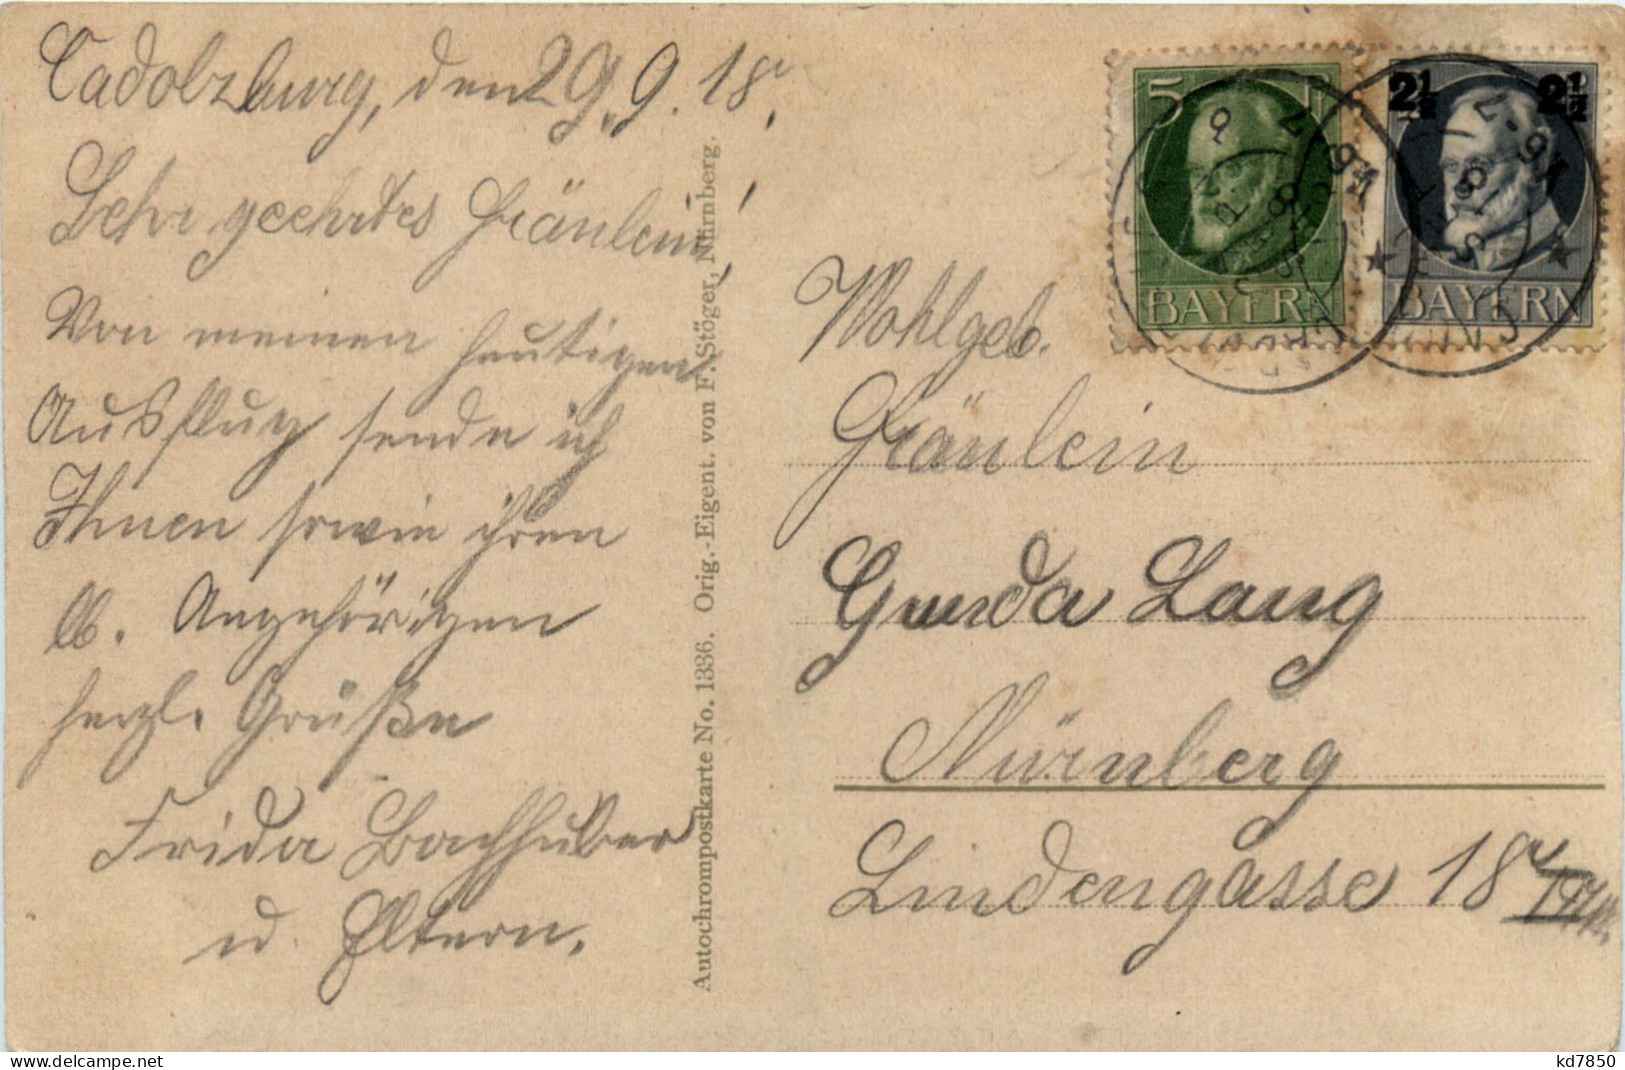 Cadolzburg, den 29. 9. 18.
Sehr geehrtes Fräulein!
Von meinen heutigen
Ausflug sende ich
Ihnen sowie ihren
lb. Angehörigen
herzl. Grüße
Frida Bachhuber
u. Eltern.
Autochrompostkarte No. 1336. Orig.-Eigent. von F. Stöger, Nürnberg.
5 P
BAYERN
2½ 2½
BAYERN
Wohlgeb.
Fräulein
Gunda Lang
Nürnberg
Lindengasse 18
www.delcampe.net
kd7850